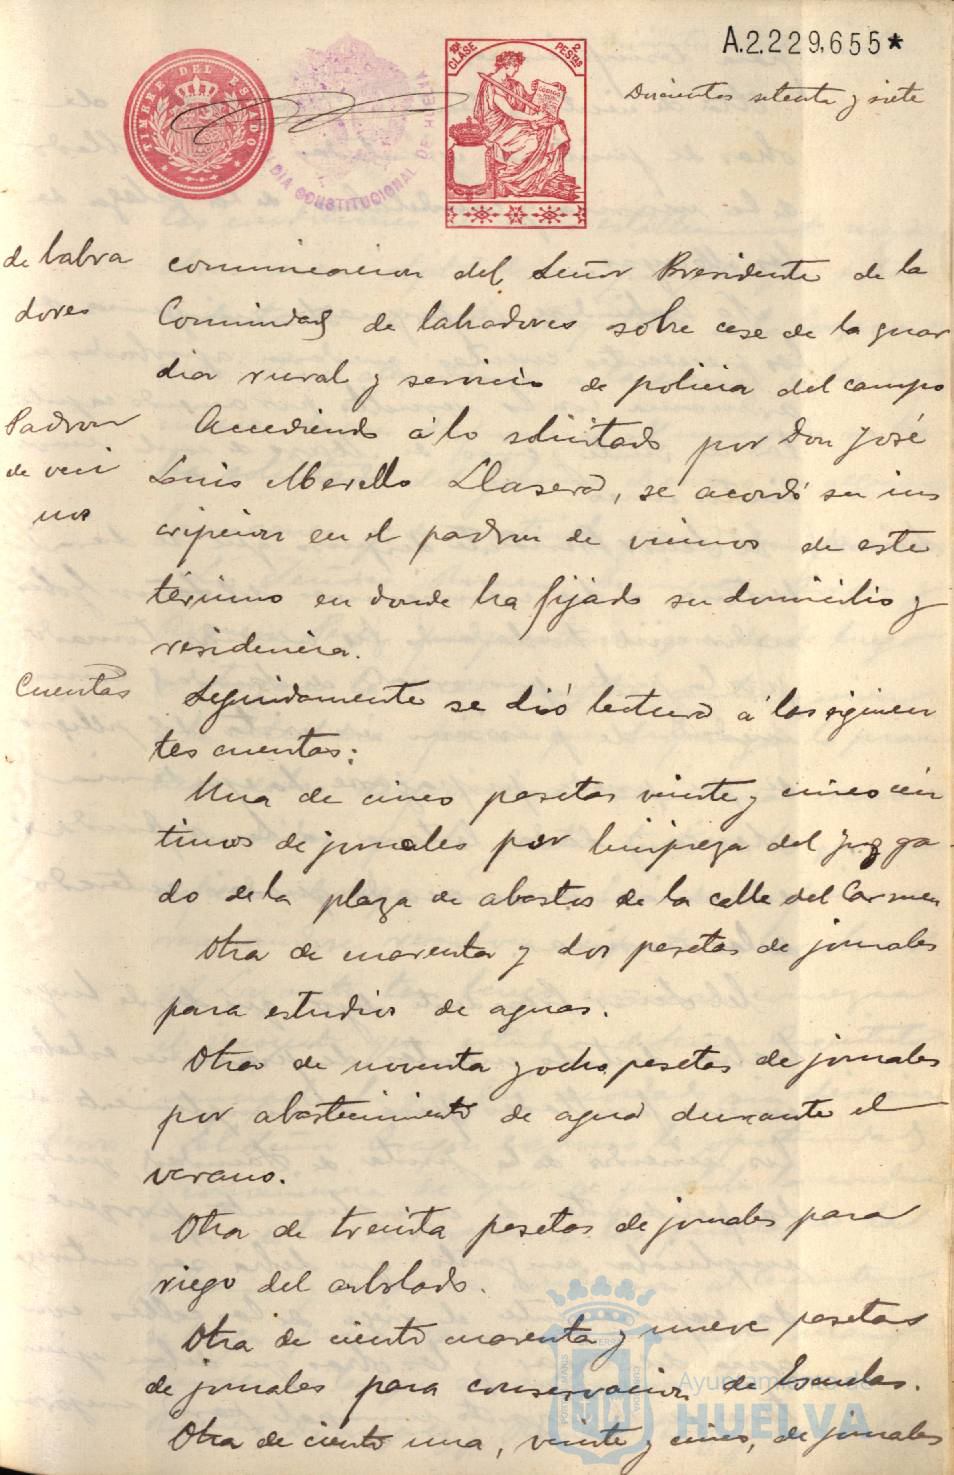 A.2.229,655*
TIMBRE DEL ESTADO
10ª CLASE 2 PESETAS
ALCALDIA CONSTITUCIONAL DE HUELVA
Doscientos setenta y siete
de labra
dores
comunicacion del Señor Presidente de la
Comunidad de labradores sobre cese de la guar
dia rural y servicio de policia del campo
Padron
de veci
nos
Accediendo á lo solicitado por Don José
Luis Morello Llasera, se acordó su ins
cripcion en el padron de vecinos de este
término en donde ha fijado su domicilio y
residencia.
Cuentas
Seguidamente se dió lectura á las siguien
tes cuentas:
Una de cinco pesetas veinte y cinco cén
timos de jornales por limpieza del juzga-
do de la plaza de abastos de la calle del Carmen
Otra de cuarenta y dos pesetas de jornales
para estudios de aguas.
Otra de noventa y ocho pesetas de jornales
por abastecimiento de agua durante el
verano.
Otra de treinta pesetas de jornales para
riego del arbolado.
Otra de ciento cuarenta y nueve pesetas
de jornales para conservacion de Escuelas.
Otra de ciento una, veinte y cinco, de jornales
Ayuntamiento de
HUELVA